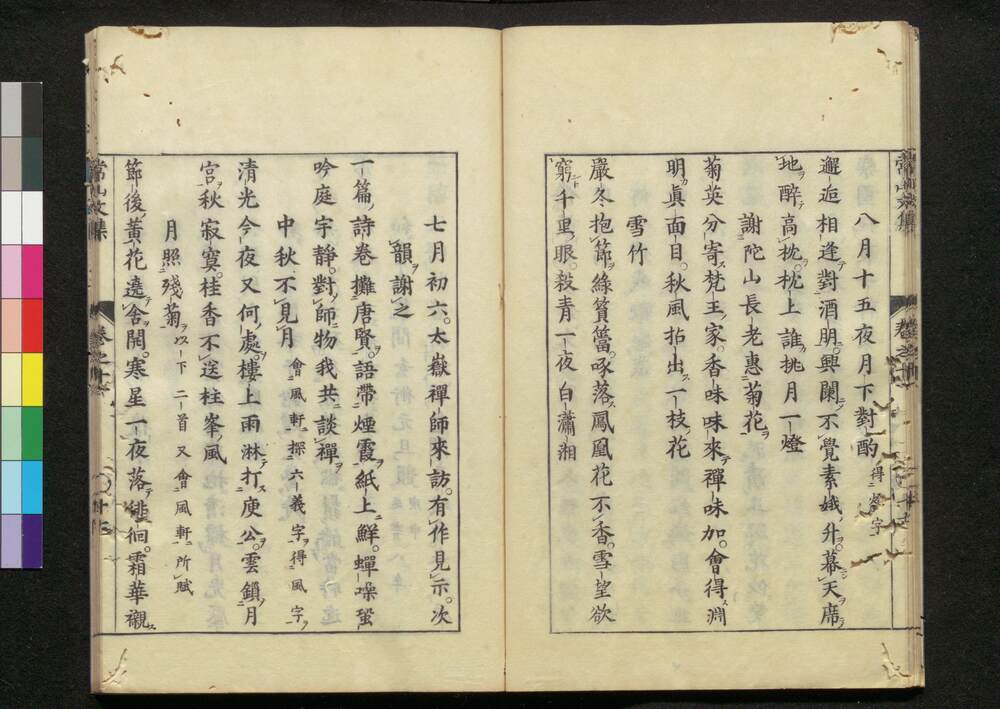 八月十五夜月下對酌 得螢字
邂逅相逢對酒朋興闌不覺素娥升幕天席
地醉高枕枕上誰挑月一燈
謝陀山長老惠菊花
菊英分寄梵王家香味味來禪味加會得淵
明眞面目秋風拈出一枝花
雪竹
嚴冬抱節綠篔簹啄落鳳凰花不香雪望欲
窮千里眼殺青一夜白瀟湘
七月初六太嶽禪師來訪有作見示次
韻謝之
一篇詩卷攤唐賢語帶煙霞紙上鮮蟬噪蛩
吟庭宇靜對師物我共談禪
中秋不見月 會風軒探六義字得風字
清光今夜又何處樓上雨淋打庾公雲鎖月
宮秋寂寞桂香不送桂峯風
月照殘菊 以下二首又會風軒所賦
節後黃花遶舍開寒星一夜落徘徊霜華襯
常山文集
卷之十